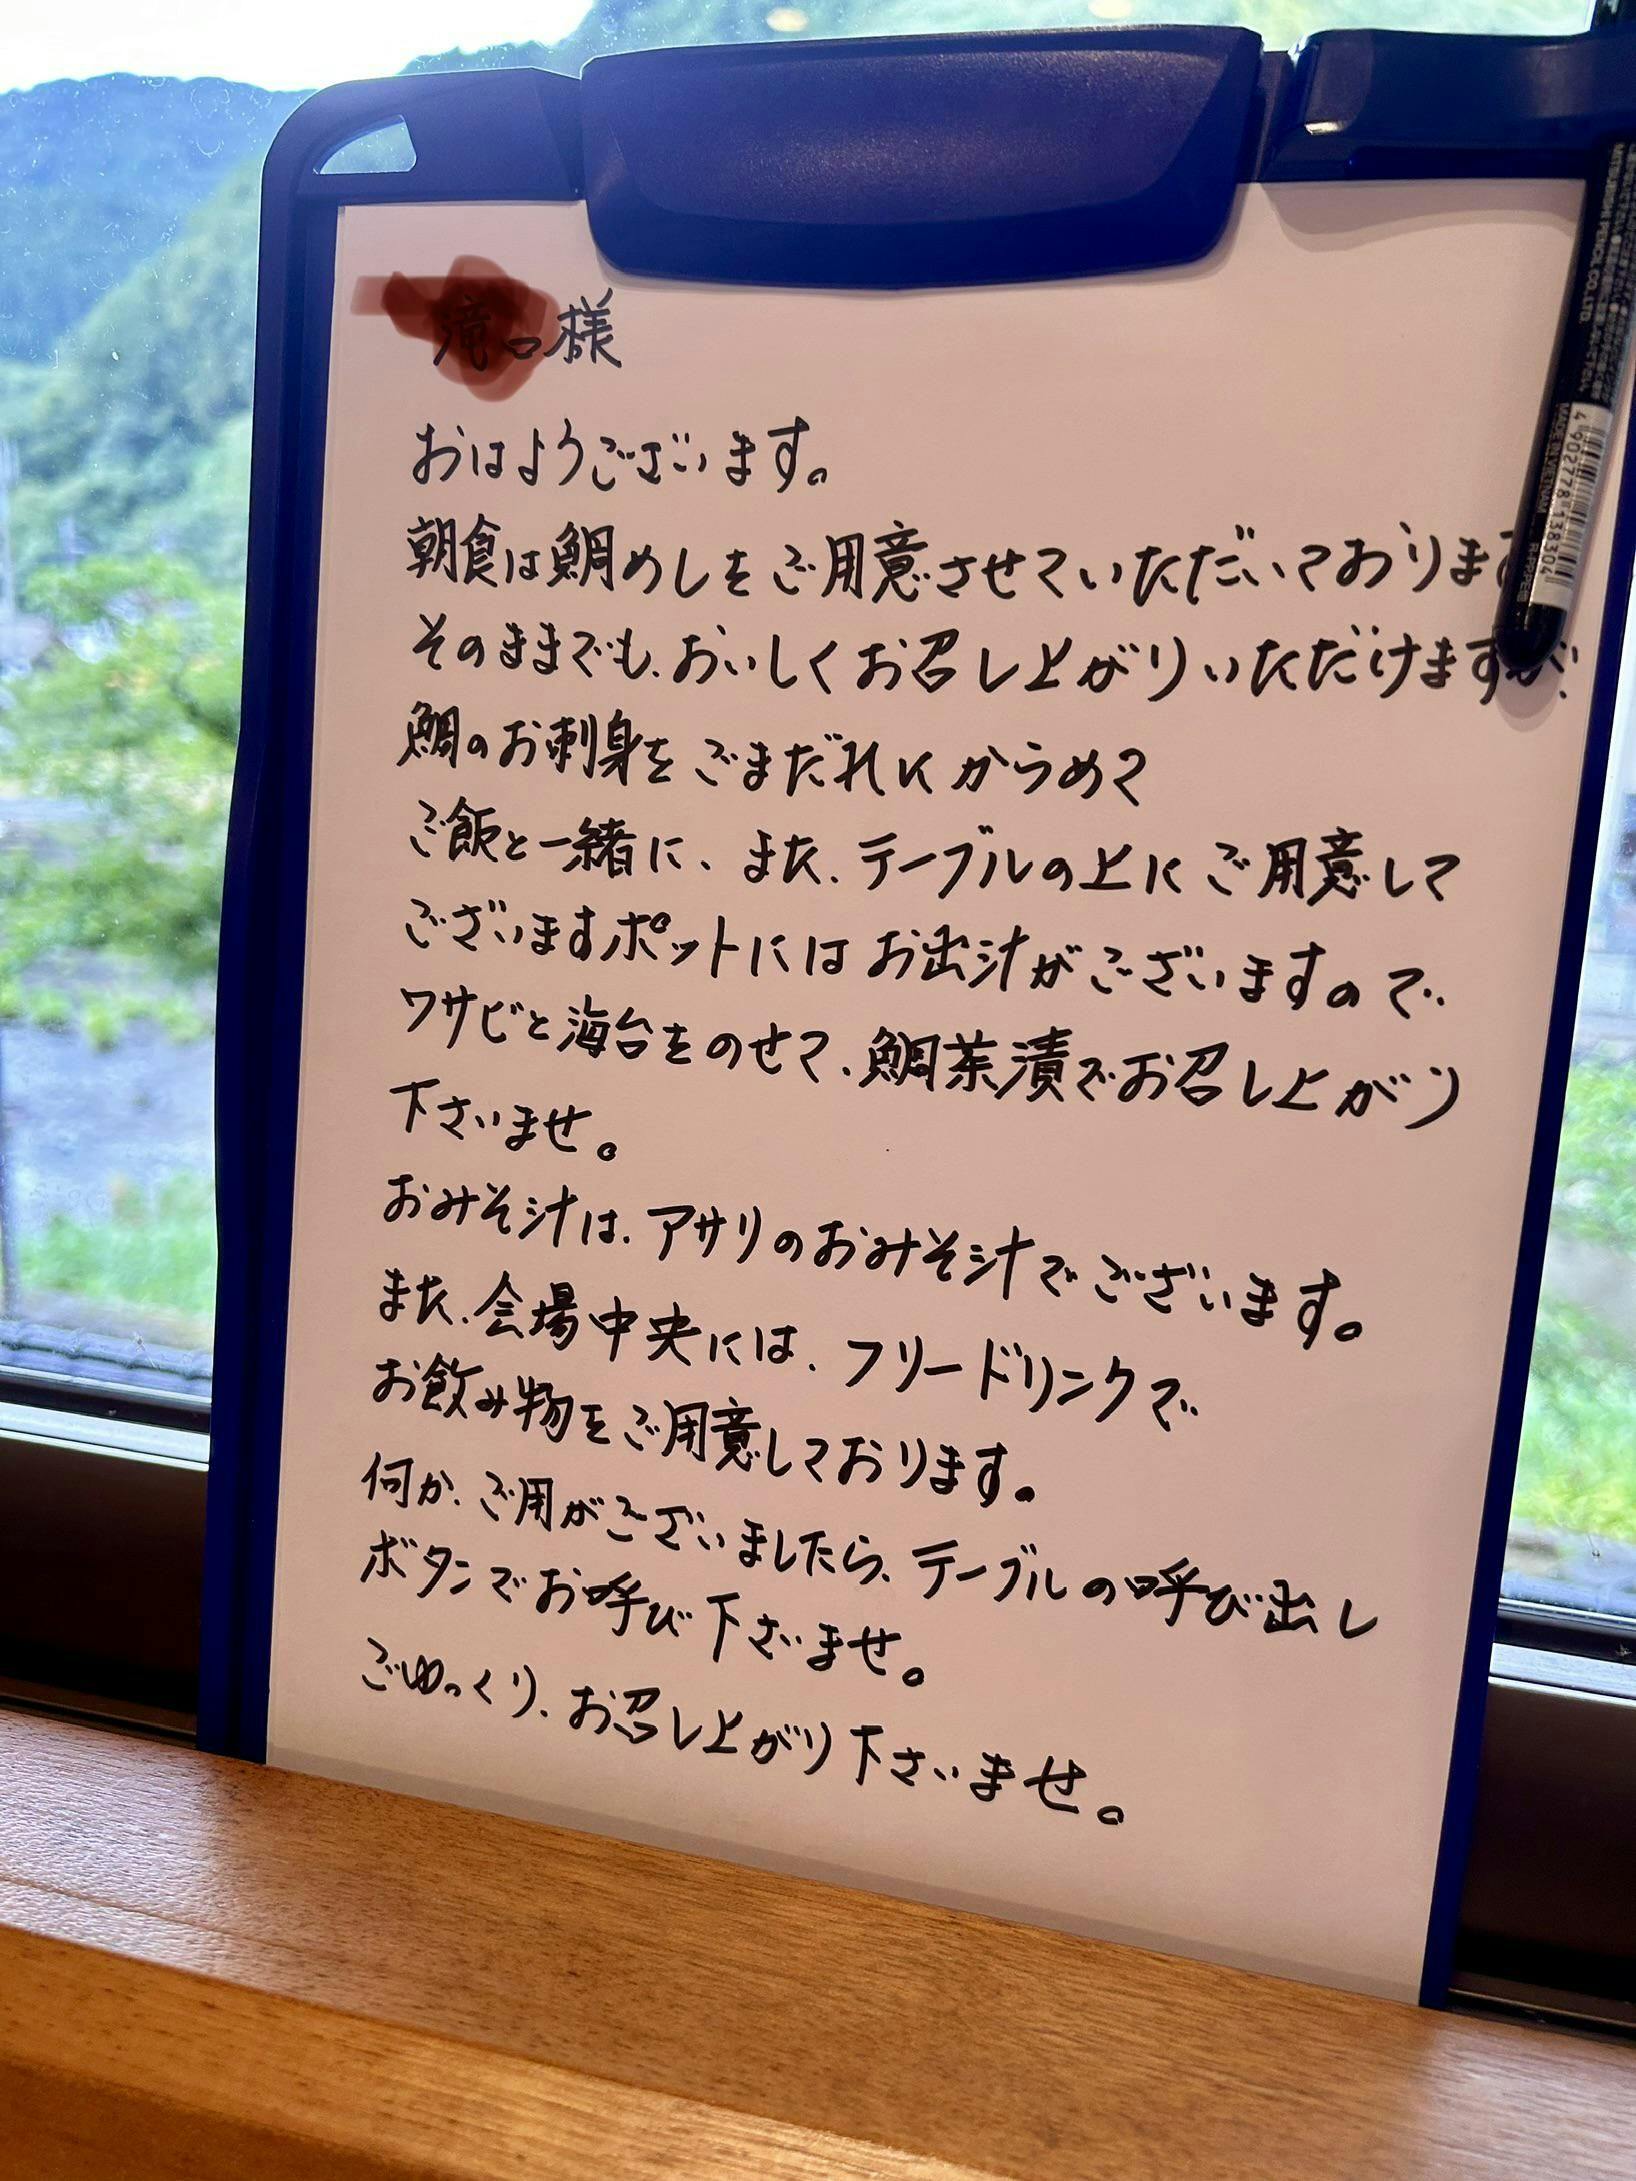 様
おはようございます。
朝食は鯛めしをご用意させていただいておりま
そのままでも、おいしくお召し上がりいただけますが、
鯛のお刺身をごまだれにからめて
ご飯と一緒に、また、テーブルの上にご用意して
ございますポットにはお出汁がございますので、
ワサビと海台をのせて、鯛茶漬でお召し上がり
下さいませ。
おみそ汁は、アサリのおみそ汁でございます。
また、会場中央には、フリードリンクで
お飲み物をご用意しております。
何か、ご用がございましたら、テーブルの呼び出し
ボタンでお呼び下さいませ。
ごゆっくり、お召し上がり下さいませ。
MITSUBISHI PENCIL CO.,LTD.
MADE IN VIETNAM
4 902778 138304